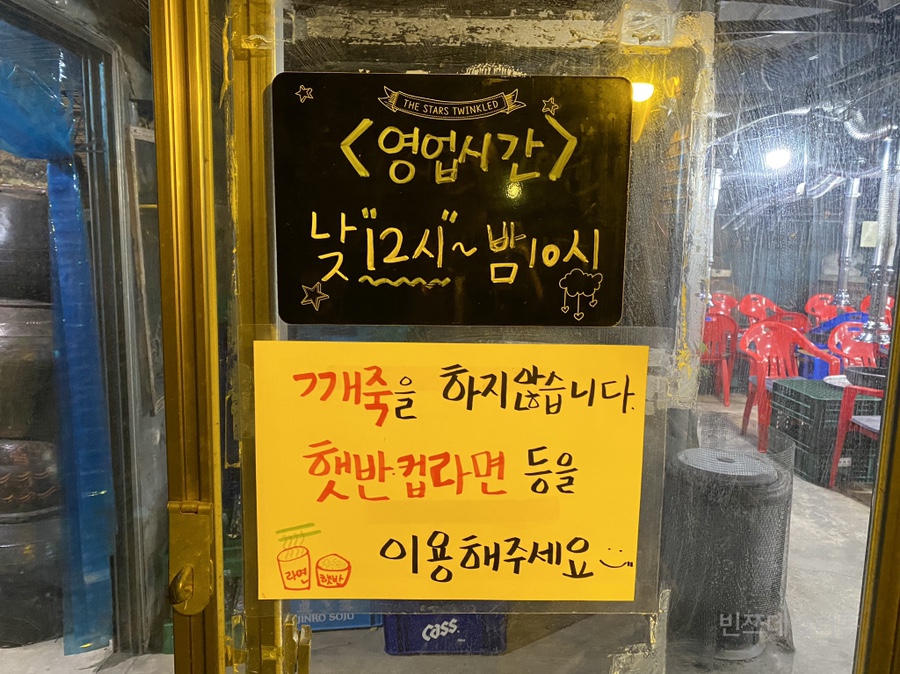 THE STARS TWINKLED
<영업시간>
낮"12시"~ 밤10시
깨죽을 하지않습니다.
햇반.컵라면 등을
이용해주세요
라면 햇반
JINRO SOJU
cass